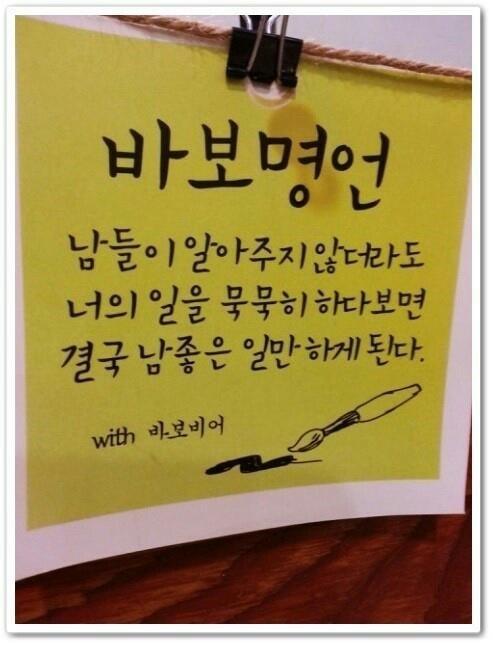 바보명언
남들이 알아주지 않더라도
너의 일을 묵묵히 하다보면
결국 남좋은 일만 하게 된다.
with 바보비어